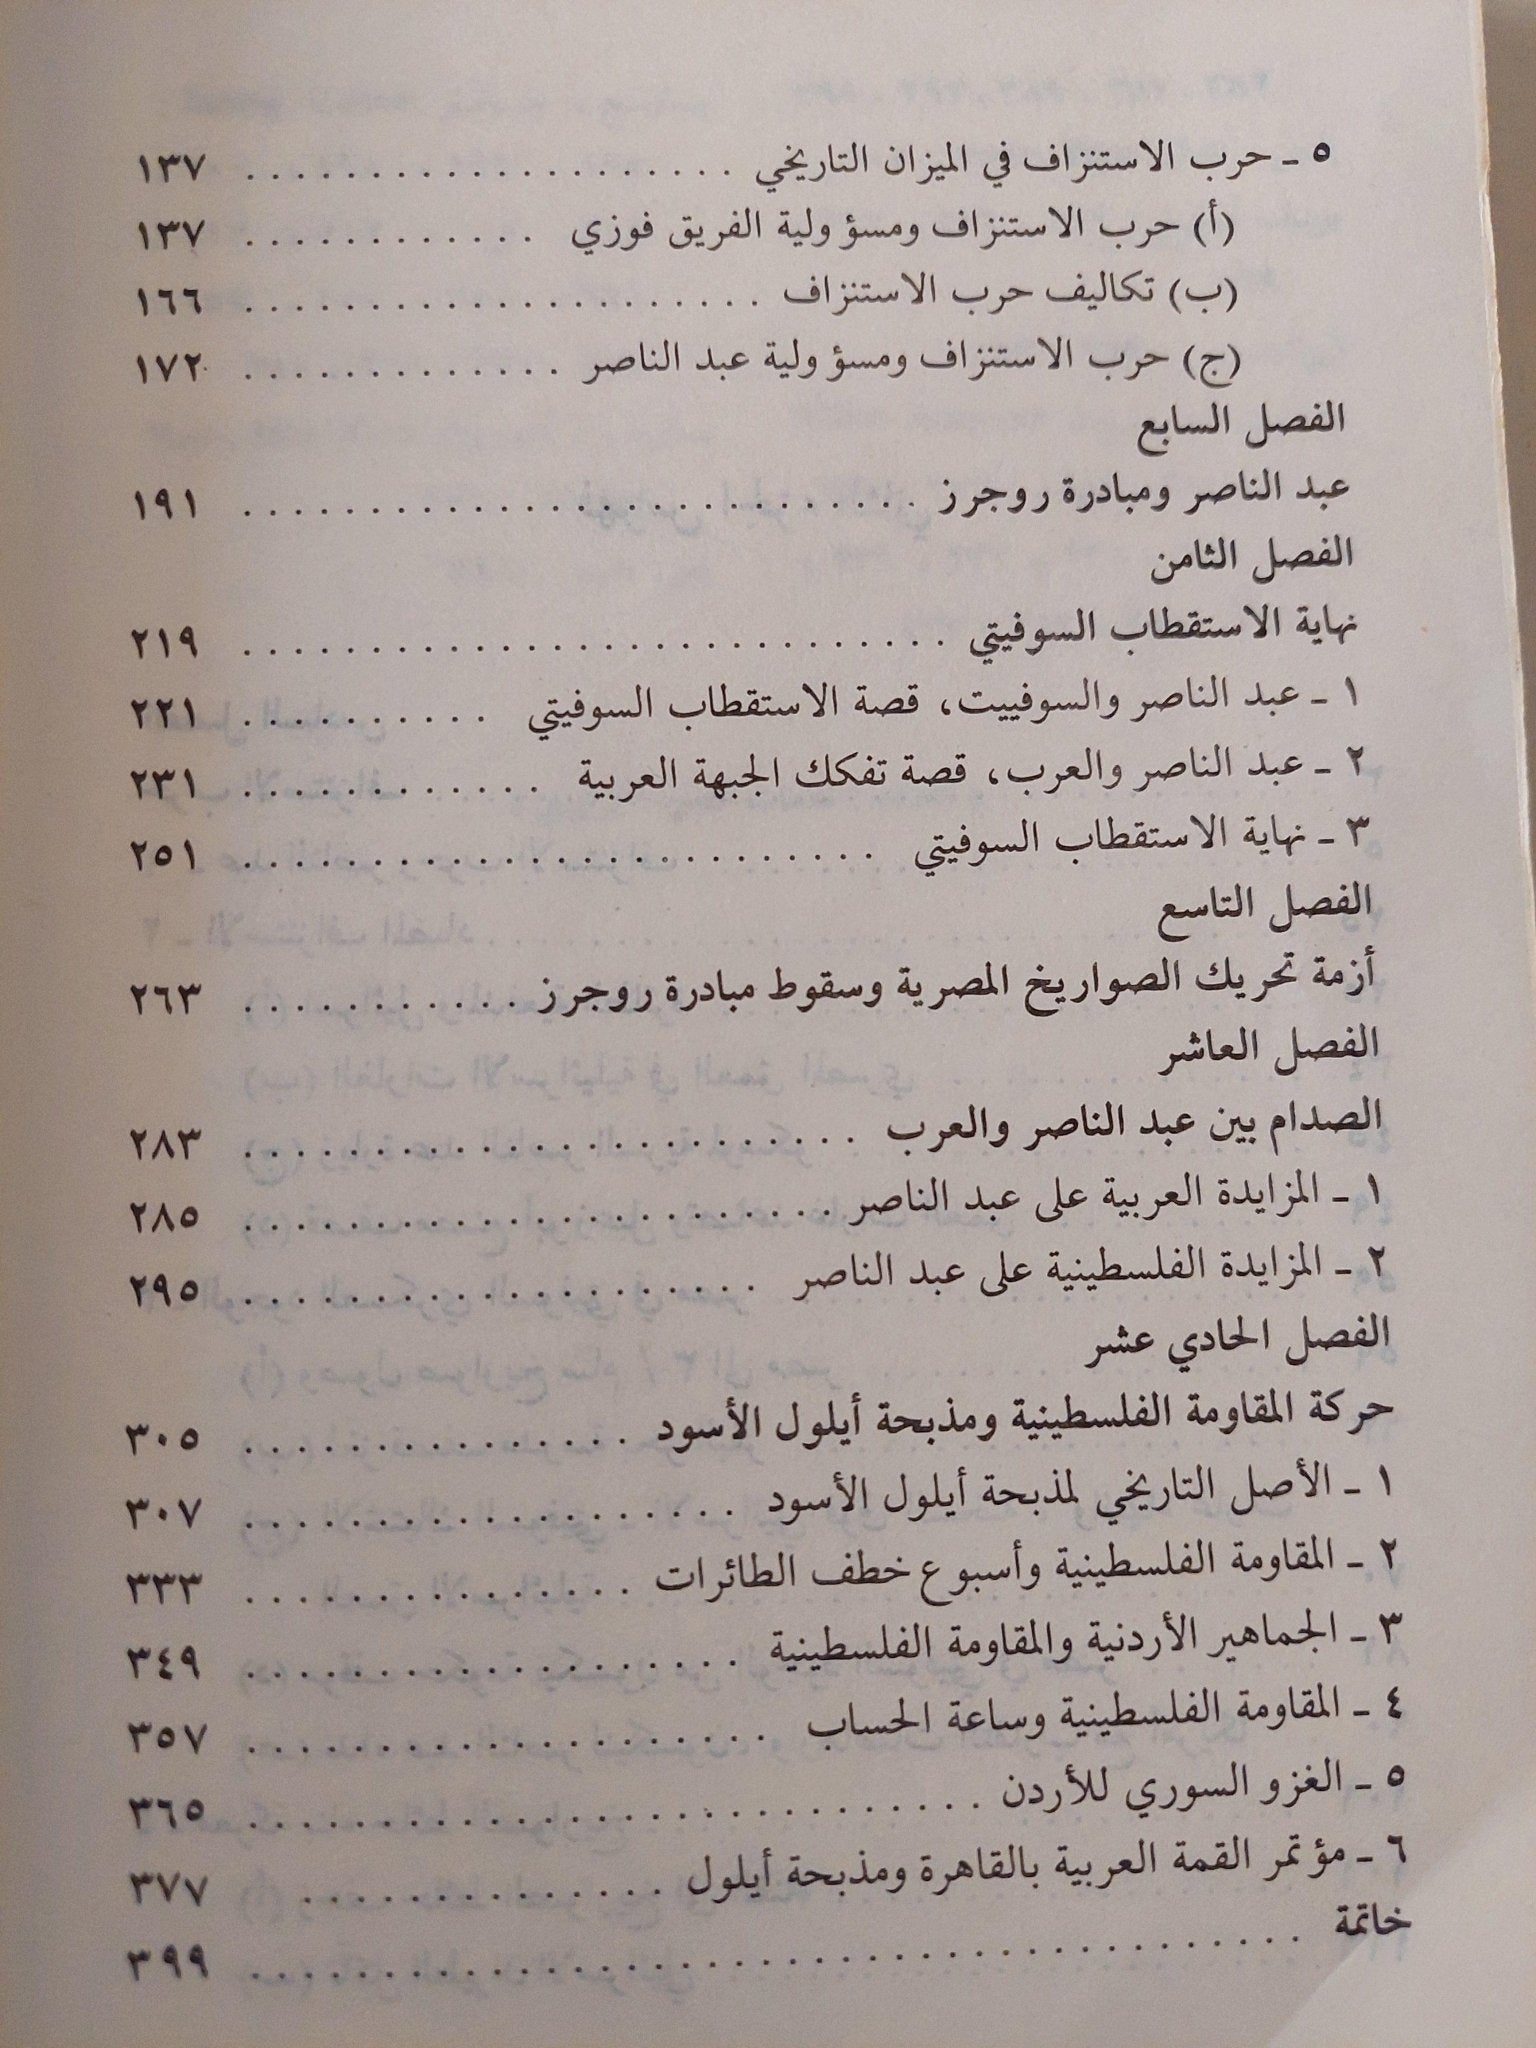 ٥ ـ حرب الاستنزاف في الميزان التاريخي . . . . . . . . . . . . . . . . . . . . ١٣٧
(أ) حرب الاستنزاف ومسؤولية الفريق فوزي . . . . . . . . . . . . ١٣٧
(ب) تكاليف حرب الاستنزاف . . . . . . . . . . . . . . . . . . . . . ١٦٦
(ج) حرب الاستنزاف ومسؤولية عبد الناصر . . . . . . . . . . . . . ١٧٢
الفصل السابع
عبد الناصر ومبادرة روجرز . . . . . . . . . . . . . . . . . . . . . . . . . . ١٩١
الفصل الثامن
نهاية الاستقطاب السوفيتي . . . . . . . . . . . . . . . . . . . . . . . . . . . ٢١٩
١ ـ عبد الناصر والسوفييت، قصة الاستقطاب السوفيتي . . . . . . . . . . ٢٢١
٢ ـ عبد الناصر والعرب، قصة تفكك الجبهة العربية . . . . . . . . . . . . ٢٣١
٣ ـ نهاية الاستقطاب السوفيتي . . . . . . . . . . . . . . . . . . . . . . . . . ٢٥١
الفصل التاسع
أزمة تحريك الصواريخ المصرية وسقوط مبادرة روجرز . . . . . . . . . . . ٢٦٣
الفصل العاشر
الصدام بين عبد الناصر والعرب . . . . . . . . . . . . . . . . . . . . . . . . ٢٨٣
١ ـ المزايدة العربية على عبد الناصر . . . . . . . . . . . . . . . . . . . . . . . ٢٨٥
٢ ـ المزايدة الفلسطينية على عبد الناصر . . . . . . . . . . . . . . . . . . . . ٢٩٥
الفصل الحادي عشر
حركة المقاومة الفلسطينية ومذبحة أيلول الأسود . . . . . . . . . . . . . . . ٣٠٥
١ ـ الأصل التاريخي لمذبحة أيلول الأسود . . . . . . . . . . . . . . . . . . . ٣٠٧
٢ ـ المقاومة الفلسطينية وأسبوع خطف الطائرات . . . . . . . . . . . . . . . ٣٣٣
٣ ـ الجماهير الأردنية والمقاومة الفلسطينية . . . . . . . . . . . . . . . . . . . ٣٤٩
٤ ـ المقاومة الفلسطينية وساعة الحساب . . . . . . . . . . . . . . . . . . . . ٣٥٧
٥ ـ الغزو السوري للأردن . . . . . . . . . . . . . . . . . . . . . . . . . . . . ٣٦٥
٦ ـ مؤتمر القمة العربية بالقاهرة ومذبحة أيلول . . . . . . . . . . . . . . ٣٧٧
خاتمة . . . . . . . . . . . . . . . . . . . . . . . . . . . . . . . . . . . . . . . . ٣٩٩